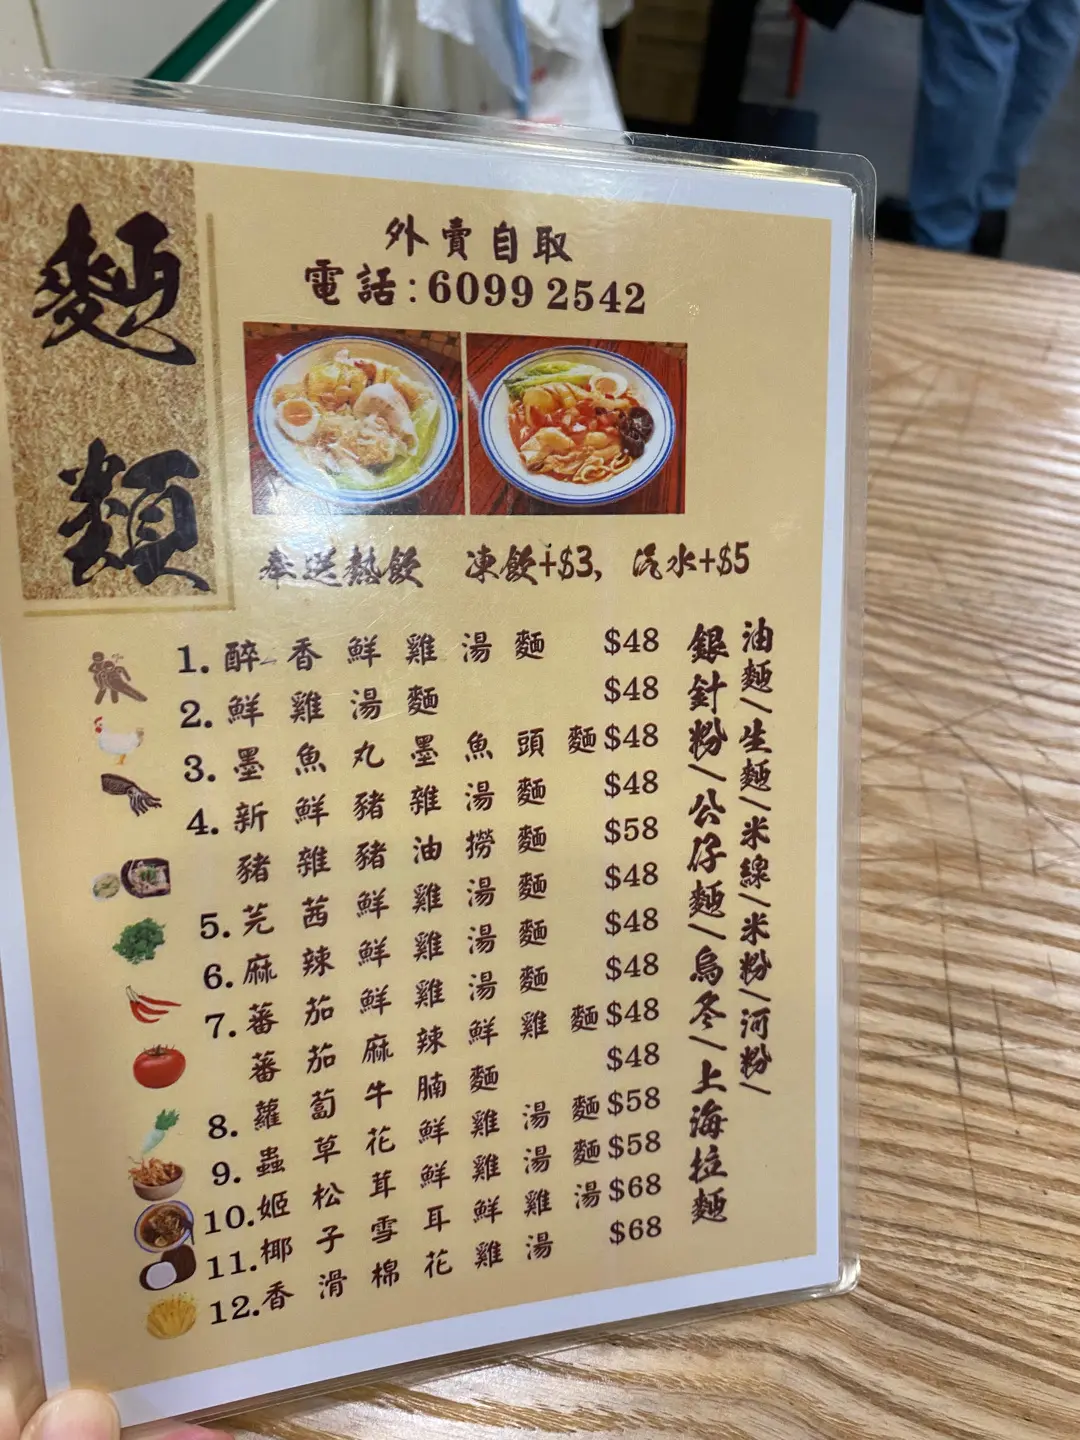 麵類
外賣自取
電話:6099 2542
奉送熱飲 凍飲+$3, 汽水+$5
1. 醉香鮮雞湯麵 $48
2. 鮮雞湯麵 $48
3. 墨魚丸墨魚頭麵 $48
4. 新鮮豬雜湯麵 $48
豬雜豬油撈麵 $58
5. 芫茜鮮雞湯麵 $48
6. 麻辣鮮雞湯麵 $48
7. 蕃茄鮮雞湯麵 $48
蕃茄麻辣鮮雞麵 $48
8. 蘿蔔牛腩麵 $48
9. 蟲草花鮮雞湯麵 $58
10. 姬松茸鮮雞湯麵 $58
11. 椰子雪耳鮮雞湯 $68
12. 香滑棉花雞湯 $68
油麵/生麵/米線/米粉/河粉/
銀針粉/公仔麵/烏冬/上海拉麵